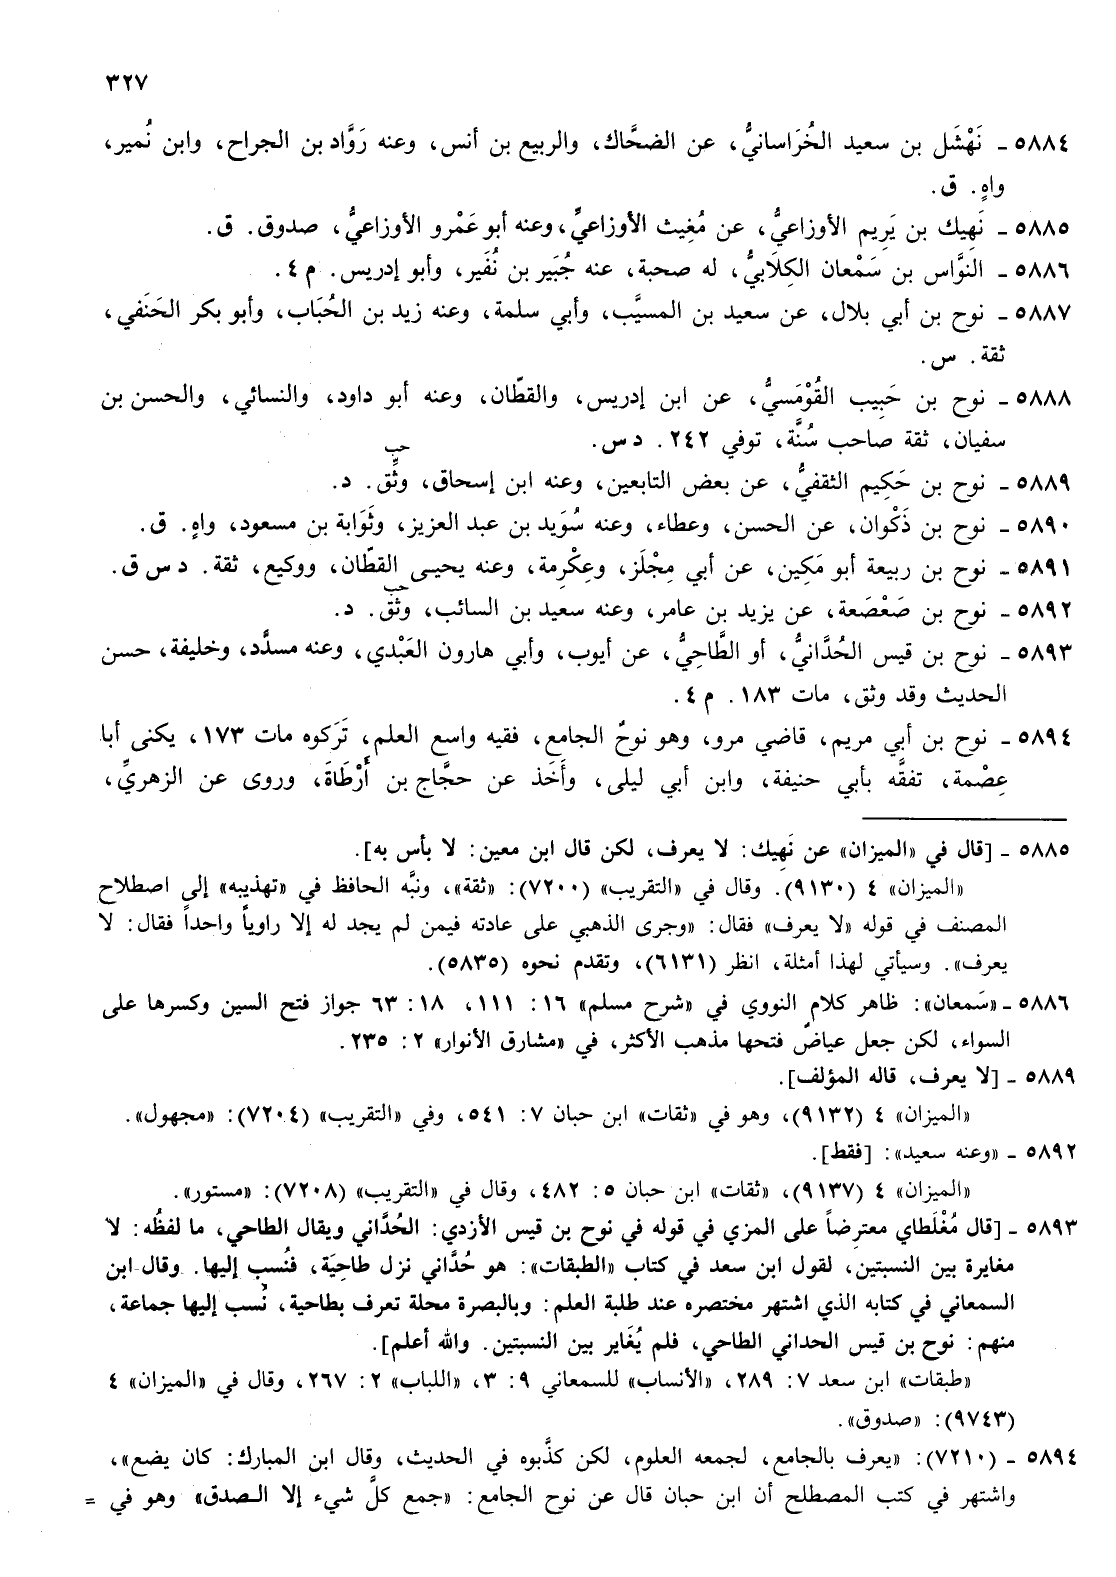 ٣٢٧
٥٨٨٤ ـ نَهْشَل بن سعيد الخُرَاسانيُّ، عن الضحَّاك، والربيع بن أنس، وعنه رَوَّاد بن الجراح، وابن نُمير،
واهٍ. ق.
٥٨٨٥ ـ نَهِيك بن يَرِيم الأوزاعيُّ، عن مُغِيث الأوزاعيِّ، وعنه أبو عَمْرو الأوزاعيُّ، صدوق. ق.
٥٨٨٦ ـ النوَّاس بن سَمْعان الكِلَابيُّ، له صحبة، عنه جُبَير بن نُفَير، وأبو إدريس. م ٤.
٥٨٨٧ ـ نوح بن أبي بلال، عن سعيد بن المسيَّب، وأبي سلمة، وعنه زيد بن الحُبَاب، وأبو بكر الحَنَفي،
ثقة. س.
٥٨٨٨ ـ نوح بن حَبِيب القُوْمَسيُّ، عن ابن إدريس، والقطّان، وعنه أبو داود، والنسائي، والحسن بن
سفيان، ثقة صاحب سُنَّة، توفي ٢٤٢. د س.
حب
٥٨٨٩ ـ نوح بن حَكِيم الثقفيُّ، عن بعض التابعين، وعنه ابن إسحاق، وثِّق. د.
٥٨٩٠ ـ نوح بن ذَكْوان، عن الحسن، وعطاء، وعنه سُوَيد بن عبد العزيز، وثَوَابة بن مسعود، واهٍ. ق.
٥٨٩١ ـ نوح بن ربيعة أبو مَكِين، عن أبي مِجْلَز، وعِكْرِمة، وعنه يحيى القطّان، ووكيع، ثقة. د س ق.
حب
٥٨٩٢ ـ نوح بن صَعْصَعة، عن يزيد بن عامر، وعنه سعيد بن السائب، وثق. د.
٥٨٩٣ ـ نوح بن قيس الحُدَّانيُّ، أو الطَّاحِيُّ، عن أيوب، وأبي هارون العَبْدي، وعنه مسدَّد، وخليفة، حسن
الحديث وقد وثق، مات ١٨٣. م ٤.
٥٨٩٤ ـ نوح بن أبي مريم، قاضي مرو، وهو نوحٌ الجامع، فقيه واسع العلم، تَرَكوه مات ١٧٣، يكنى أبا
عِصْمة، تفقَّه بأبي حنيفة، وابن أبي ليلى، وأَخَذ عن حجَّاج بن أَرْطَاةَ، وروى عن الزهريِّ،
٥٨٨٥ ـ [قال في «الميزان» عن نَهِيك: لا يعرف، لكن قال ابن معين: لا بأس به].
«الميزان» ٤ (٩١٣٠). وقال في «التقريب» (٧٢٠٠): «ثقة»، ونبَّه الحافظ في «تهذيبه» إلى اصطلاح
المصنف في قوله «لا يعرف» فقال: «وجرى الذهبي على عادته فيمن لم يجد له إلا راوياً واحداً فقال: لا
يعرف». وسيأتي لهذا أمثلة، انظر (٦١٣١)، وتقدم نحوه (٥٨٣٥).
٥٨٨٦ ـ «سَمعان»: ظاهر كلام النووي في «شرح مسلم» ١٦: ١١١، ١٨: ٦٣ جواز فتح السين وكسرها على
السواء، لكن جعل عياضٌ فتحها مذهب الأكثر، في «مشارق الأنوار» ٢: ٢٣٥.
٥٨٨٩ ـ [لا يعرف، قاله المؤلف].
«الميزان» ٤ (٩١٣٢)، وهو في «ثقات» ابن حبان ٧: ٥٤١، وفي «التقريب» (٧٢٠٤): «مجهول».
٥٨٩٢ ـ «وعنه سعيد»: [فقط].
«الميزان» ٤ (٩١٣٧)، «ثقات» ابن حبان ٥: ٤٨٢، وقال في «التقريب» (٧٢٠٨): «مستور».
٥٨٩٣ ـ [قال مُغْلَطاي معترضاً على المزي في قوله في نوح بن قيس الأزدي: الحُدَّاني ويقال الطاحي، ما لفظُه: لا
مغايرة بين النسبتين، لقول ابن سعد في كتاب «الطبقات»: هو حُدَّاني نزل طاحِيَة، فنُسب إليها. وقال ابن
السمعاني في كتابه الذي اشتهر مختصره عند طلبة العلم: وبالبصرة محلة تعرف بطاحية، نُسب إليها جماعة،
منهم: نوح بن قيس الحداني الطاحي، فلم يُغَاير بين النسبتين. والله أعلم].
«طبقات» ابن سعد ٧: ٢٨٩، «الأنساب» للسمعاني ٩: ٣، «اللباب» ٢: ٢٦٧، وقال في «الميزان» ٤
(٩٧٤٣): «صدوق».
٥٨٩٤ ـ (٧٢١٠): «يعرف بالجامع، لجمعه العلوم، لكن كذَّبوه في الحديث، وقال ابن المبارك: كان يضع»،
واشتهر في كتب المصطلح أن ابن حبان قال عن نوح الجامع: «جمع كلَّ شيء إلا الصدق» وهو في =